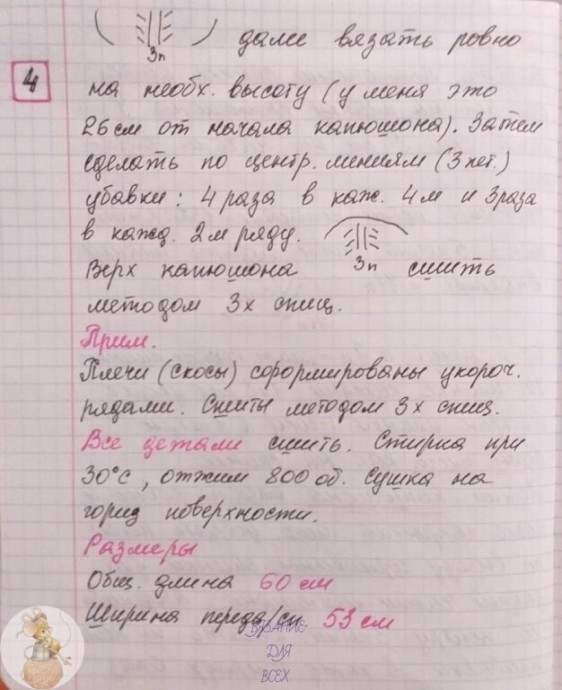 3п
далее вязать ровно
4
на необх. высоту (у меня это
26 см от начала капюшона). Затем
сделать по центр. линиям (3 пет.)
убавки: 4 раза в каж. 4м и 3 раза
в кажд. 2м ряду.
3п
Верх капюшона сшить
методом 3х спиц.
Прим.
Плечи (скосы) сформированы укороч.
рядами. Сшиты методом 3х спиц.
Все детали сшить. Стирка при
30°С, отжим 800 об. Сушка на
гориз поверхности.
Размеры
Общ. длина 60 см
Ширина переда/сп. 53 см
ВЯЗАНИЕ
ДЛЯ
ВСЕХ